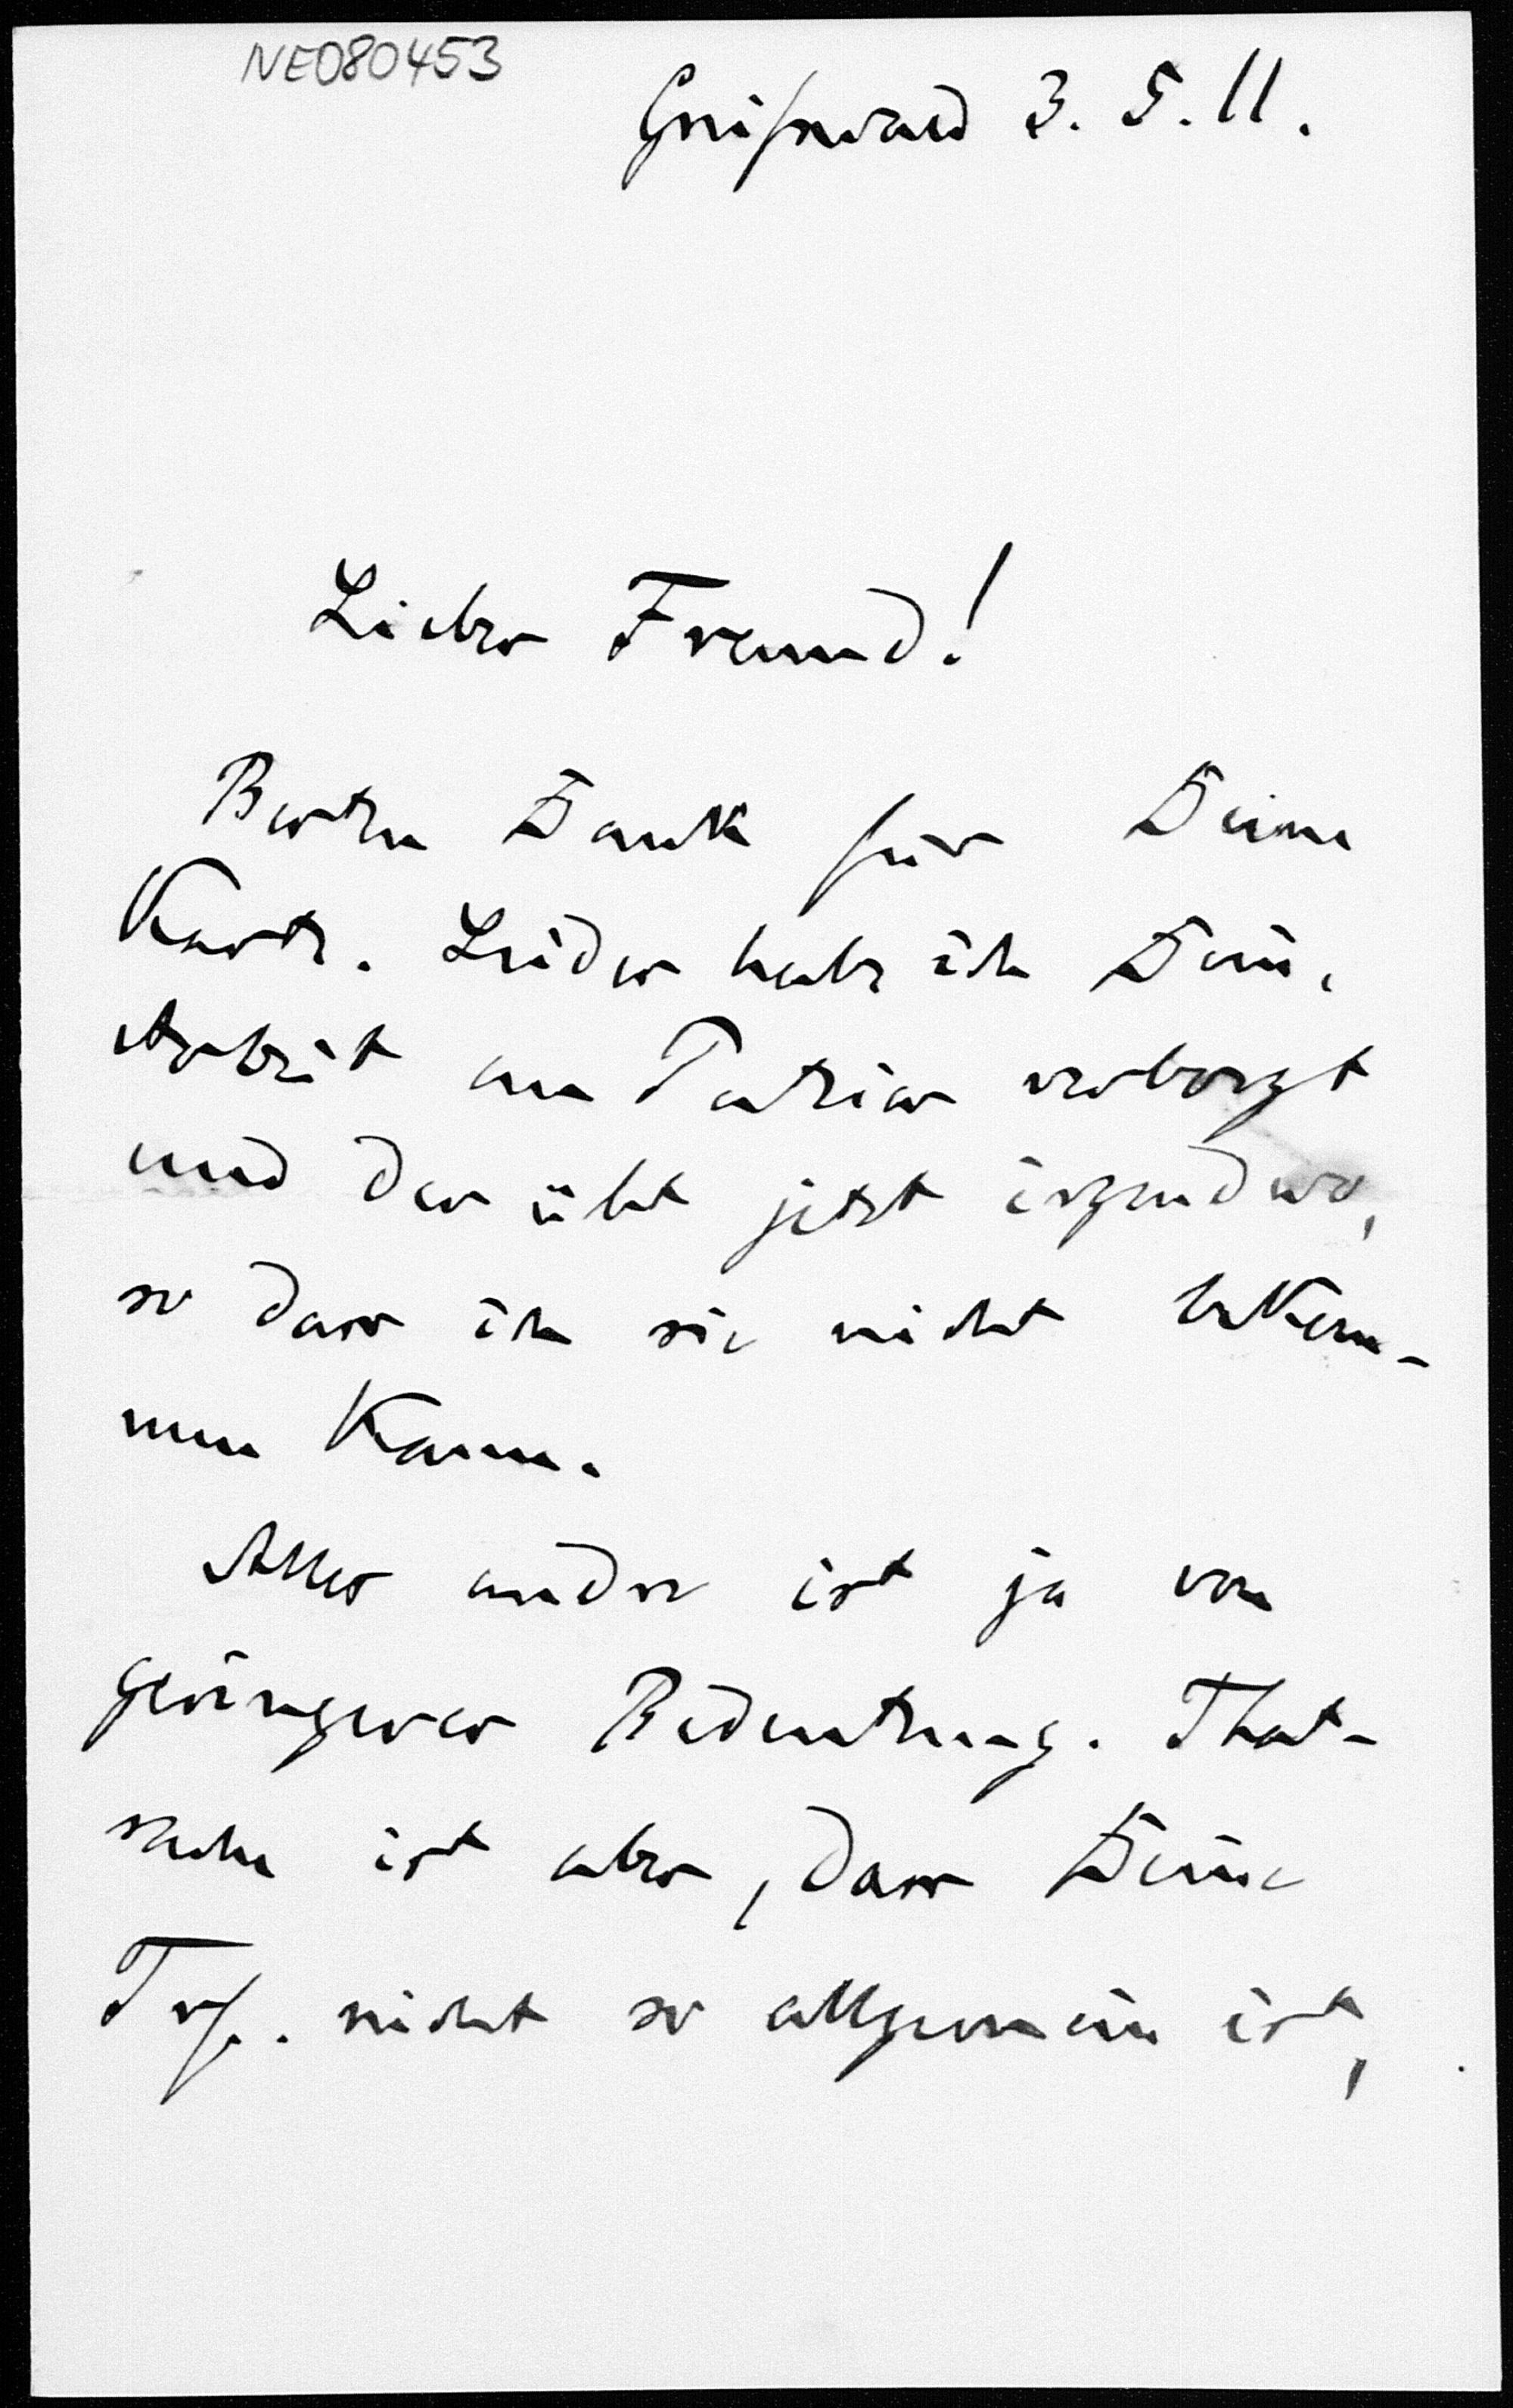 NE080453
Greifswald 3. 5. 11.
Lieber Freund!
Besten Dank für Deine
Karte. Leider habe ich Deine
Arbeit an verborgt
und der übt jetzt irgendwo,
so dass ich sie nicht bekom-
men kann.
Alles andre ist ja von
geringerer Bedeutung. That-
sache ist aber, dass Deine
nicht so allgemein ist,